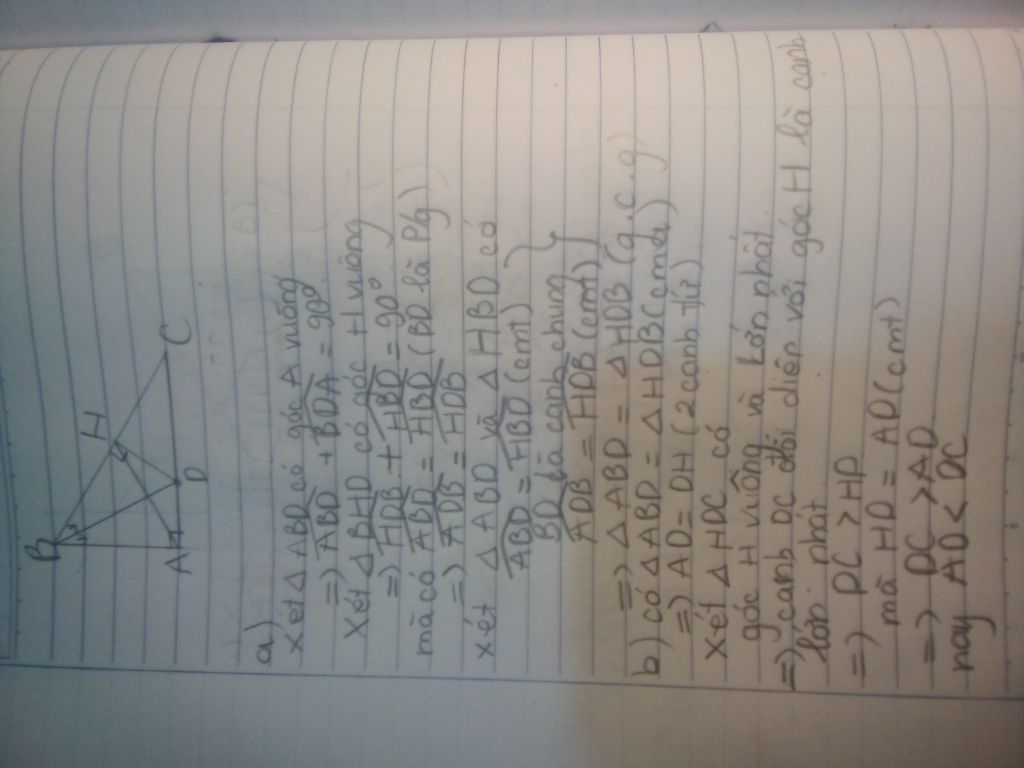 B
H
C
A
D
a)
xét △ ABD có góc A vuông
=) ABD + BDA = 90°
xét △ BHD có góc H vuông
=) HDB + HBD = 90°
mà có ABD = HBD (BD là P/g)
=) ADB = HDB
xét △ ABD và △ HBD có
ABD = HBD (cmt)
BD là cạnh chung
ADB = HDB (cmt)
=) △ ABD = △ HDB (g.c.g)
b) có △ ABD = △ HDB (cma)
=) AD = DH (2 cạnh T/Ư)
xét △ HDC có
góc H vuông và Lớn nhất
=) cạnh DC đối diện với góc H là cạnh
lớn nhất
=) DC > HD
mà HD = AD (cmt)
=) DC > AD
hay AD < DC